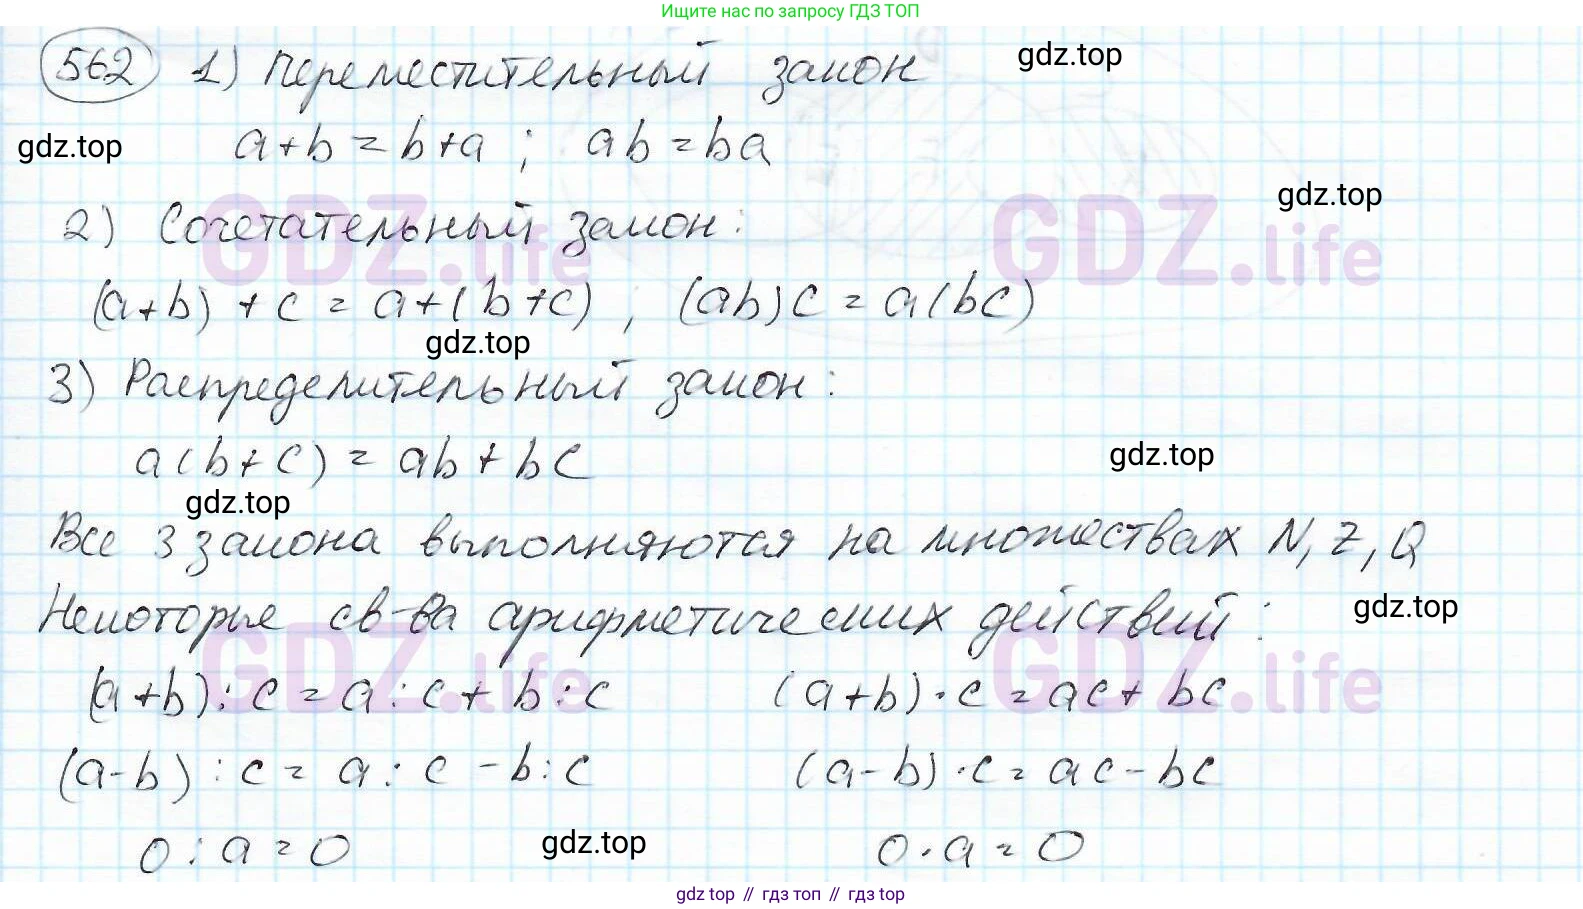 Ищите нас по запросу ГДЗ ТОП
562 1) Переместительный закон
gdz.top
a+b=b+a; ab=ba
gdz.top
gdz.top
2) Сочетательный закон:
GDZ.life GDZ.life
(a+b)+c=a+(b+c), (ab)c=a(bc)
gdz.top
3) Распределительный закон:
a(b+c)=ab+bc
gdz.top
gdz.top
Все 3 закона выполняются на множествах N, Z, Q
Некоторые св-ва арифметических действий:
gdz.top
GDZ.life GDZ.life
(a+b):c=a:c+b:c (a+b)·c=ac+bc
(a-b):c=a:c-b:c (a-b)·c=ac-bc
0:a=0 gdz.top 0·a=0
gdz top // гдз топ // гдз top